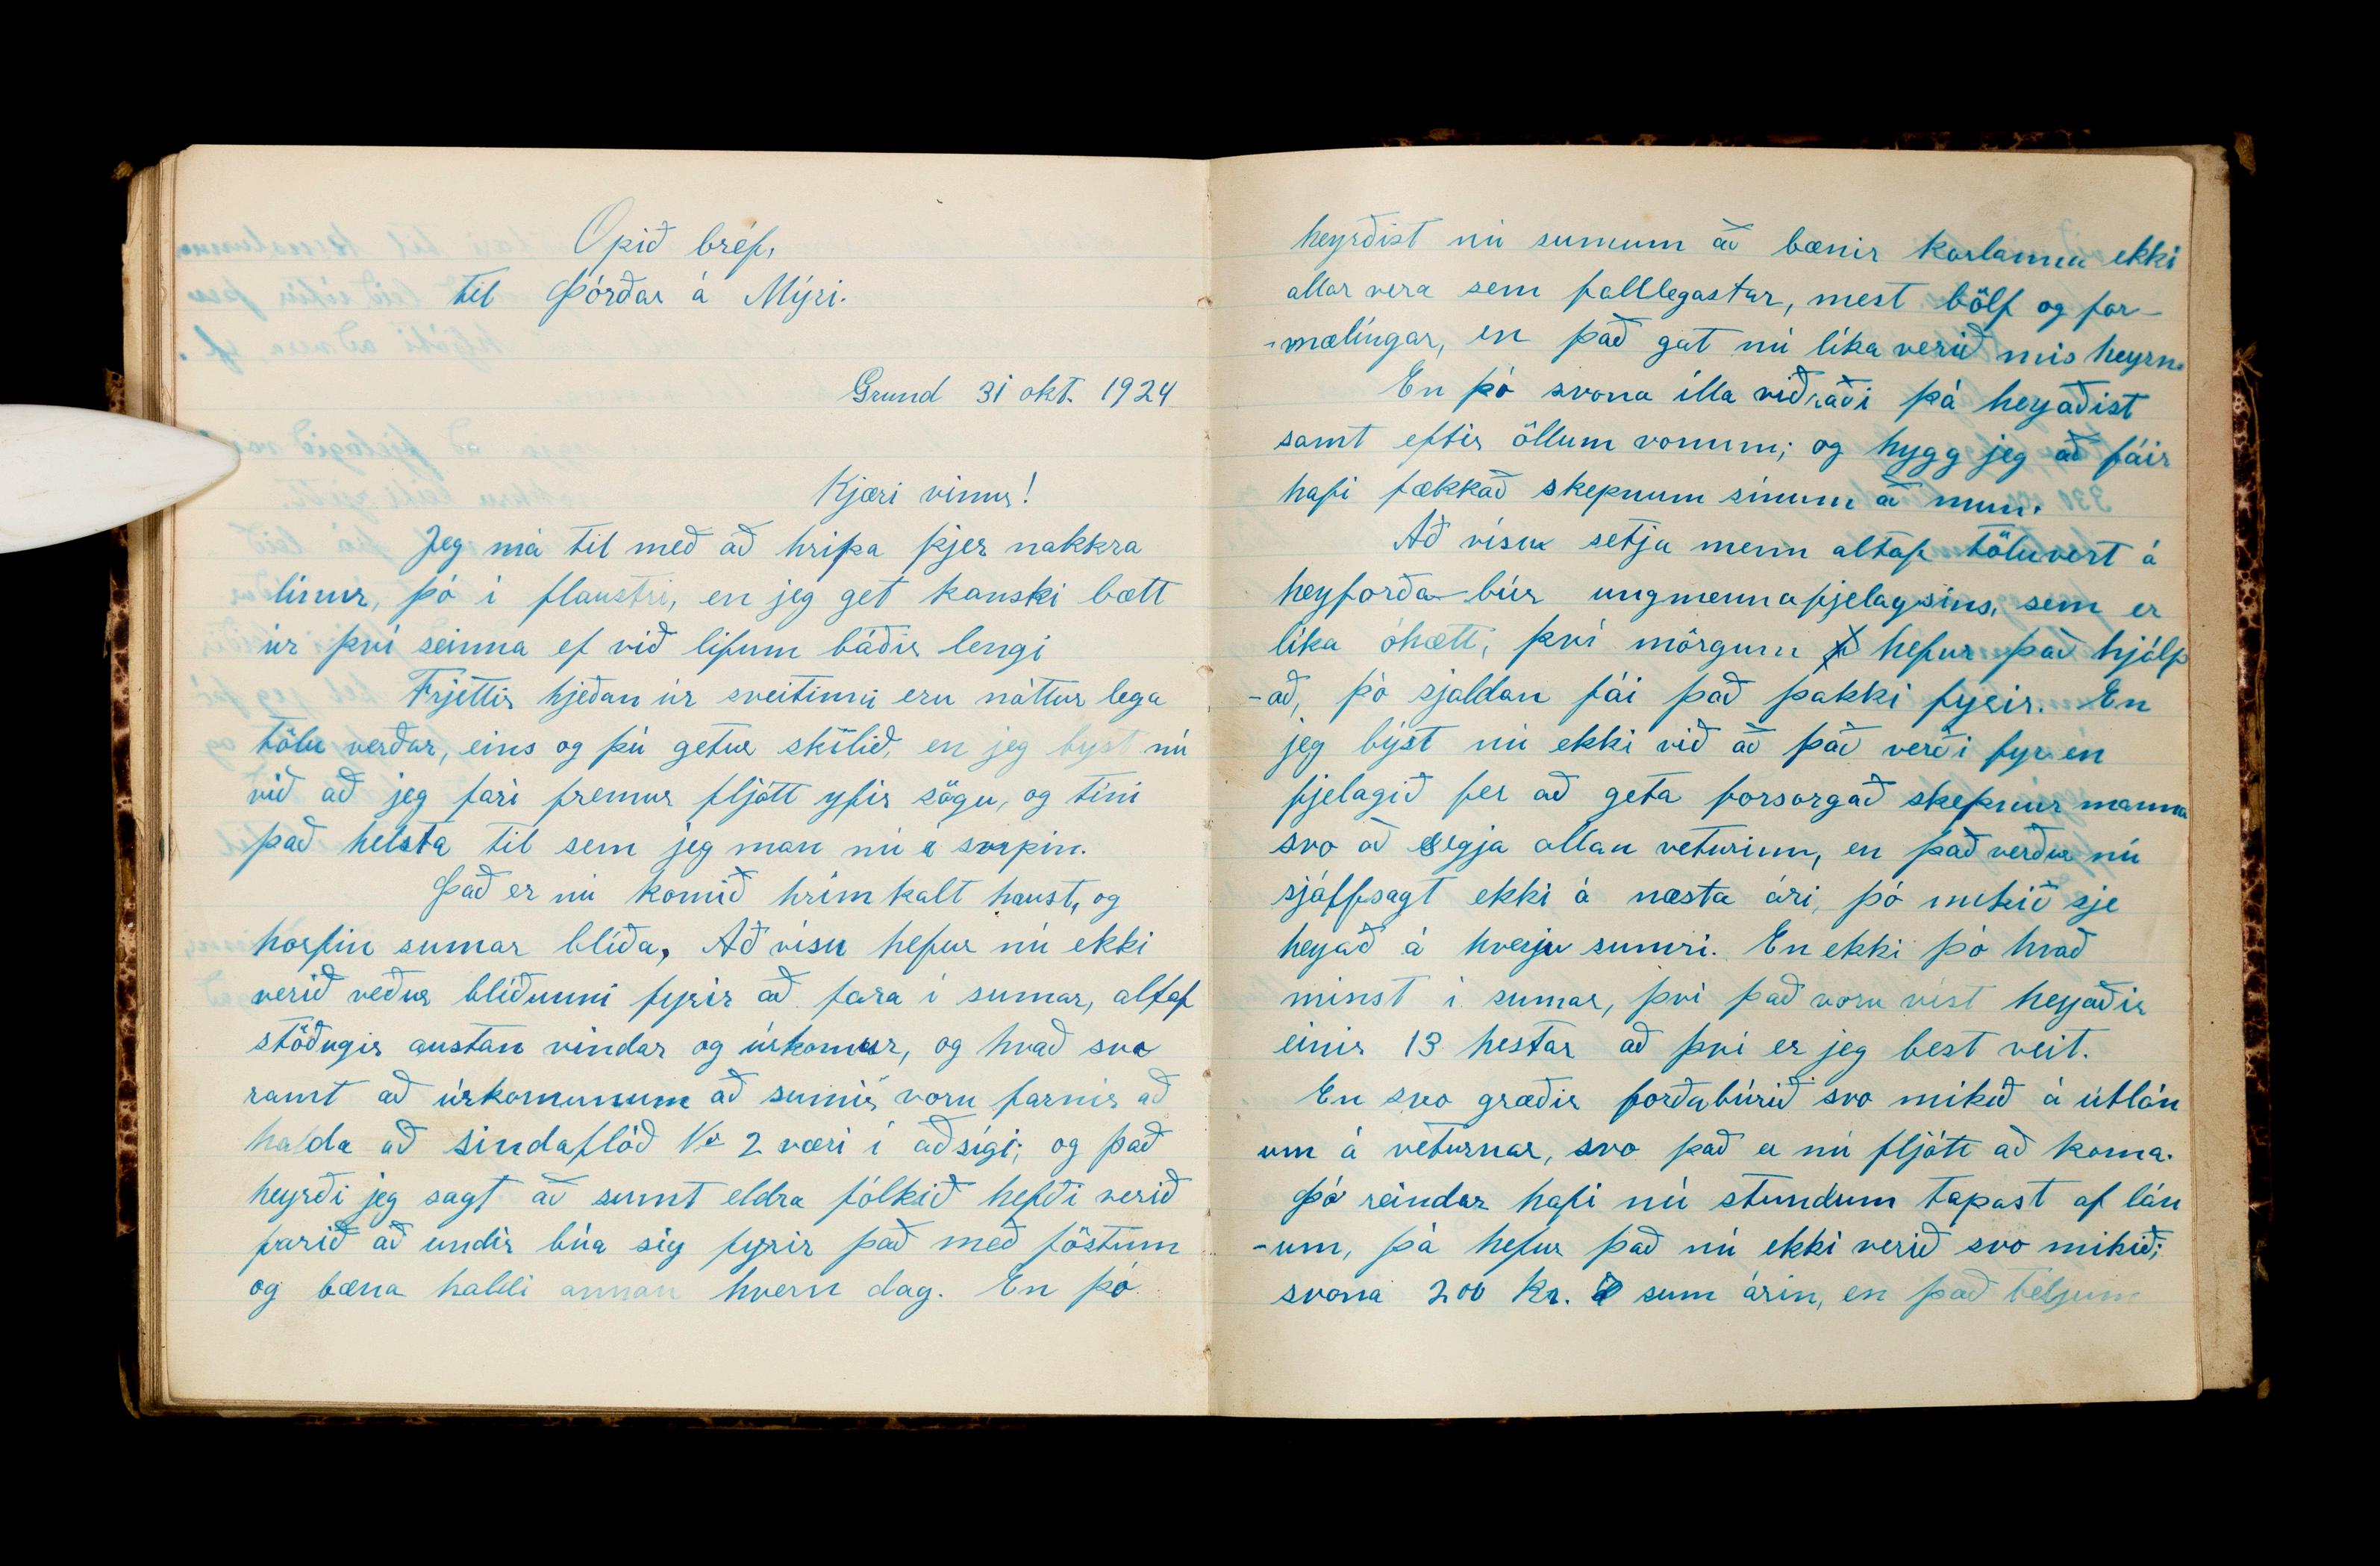 Opið bréf,
til Þórðar á Mýri.
Grund 31 okt. 1924
Kjæri vinur!
Jeg má til með að hripa þjer nakkra
línur, þó í flaustri, en jeg get kanski bætt
úr því seinna ef við lifum báðir lengi
Frjettir hjeðan úr sveitinni eru náttur lega
tölu verðar, eins og þú getur skilið, en jeg byst nú
við að jeg fari fremur fljótt yfir sögu, og tíni
það helsta til sem jeg man nú í svipin.
Það er nú komið hrímkalt haust, og
horfin sumar blíða, Að vísu hefur nú ekki
verið veður blíðunni fyrir að fara í sumar, altaf
stöðugir austan vindar og úrkomur, og hvað svo
ramt að úrkomunum að sumir voru farnir að
halda að sindaflóð Nr 2 væri í aðsígi; og það
heyrði jeg sagt að sumt eldra fólkið hefði verið
farið að undir búa sig fyrir það með föstum
og bæna haldi annan hvern dag. En þó
heyrðist nú sumum að bænir karlanna ekki
allar vera sem falllegastar, mest bölf og for-
-mælíngar, en það gat nú líka verið mis heyrn.
En þó svona illa viðraði þá heyaðist
samt eftir öllum vonum; og hygg jeg að fáir
hafi fækkað skepnum sínum að mun.
Að vísu setja menn altaf töluvert á
heyforða-búr ungmennafjelagsins, sem er
líka óhætt, því mörgum hefur það hjálp
-að, þó sjaldan fái það þakki fyrir. En
jeg býst nú ekki við að það verði fyr en
fjelagið fer að geta forsorgað skepnur manna
svo að segja allan veturinn, en það verður nú
sjálfsagt ekki á næsta ári, þó mikið sje
heyað á hverju sumri. En ekki þó hvað
minst í sumar, því það voru víst heyaðir
einir 13 hestar að því er jeg best veit.
En svo græðir forðabúrið svo mikið á útlán
um á veturnar, svo það er nú fljótt að koma.
Þó reindar hafi nú stundum tapast af lán
-um, þá hefur það nú ekki verið svo mikið;
svona 200 kr. sum árin, en það teljum